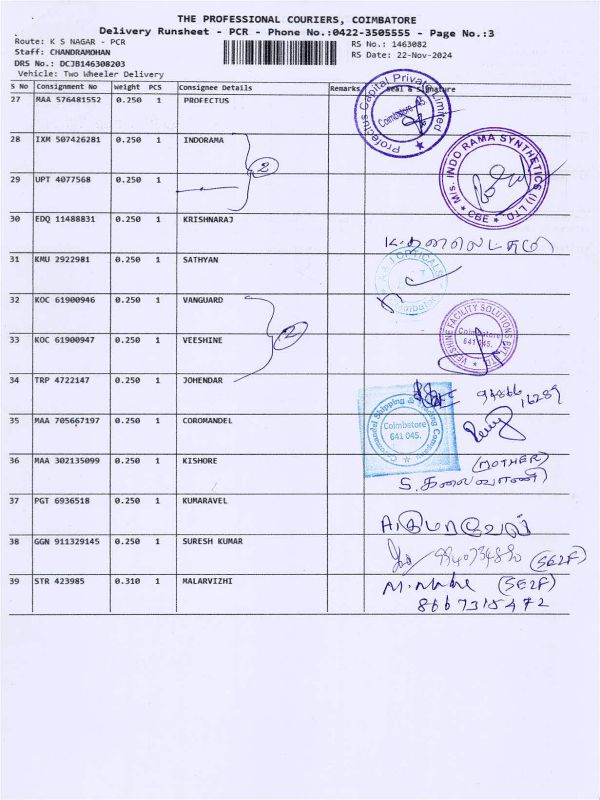 THE PROFESSIONAL COURIERS, COIMBATORE
Delivery Runsheet - PCR - Phone No.:0422-3505555 - Page No.:3
Route: K S NAGAR - PCR
RS No.: 1463082
Staff: CHANDRAMOHAN
RS Date: 22-Nov-2024
DRS No.: DCJB146308203
Vehicle: Two Wheeler Delivery
S No Consignment No Weight PCS Consignee Details Remarks Seal & Signature
27 MAA 576481552 0.250 1 PROFECTUS
Profectus Capital Private Limited
Coimbatore-45
28 IXM 507426281 0.250 1 INDORAMA
2
M/s. INDO RAMA SYNTHETICS (I) LTD
CBE
29 UPT 4077568 0.250 1
30 EDQ 11488831 0.250 1 KRISHNARAJ
31 KMU 2922981 0.250 1 SATHYAN
OPTICALS
32 KOC 61900946 0.250 1 VANGUARD
2
VEESHINE FACILITY SOLUTIONS PVT LTD
Coimbatore
641 045.
33 KOC 61900947 0.250 1 VEESHINE
34 TRP 4722147 0.250 1 JOHENDAR
94866
16289
35 MAA 705667197 0.250 1 COROMANDEL
Coromandel Shipping & Trading Company
Coimbatore
641 045.
36 MAA 302135099 0.250 1 KISHORE
(MOTHER)
S. கலைவாணி
37 PGT 6936518 0.250 1 KUMARAVEL
A. குமாரவேல்
38 GGN 911329145 0.250 1 SURESH KUMAR
(SELF)
39 STR 423985 0.310 1 MALARVIZHI
(SELF)
8667315472